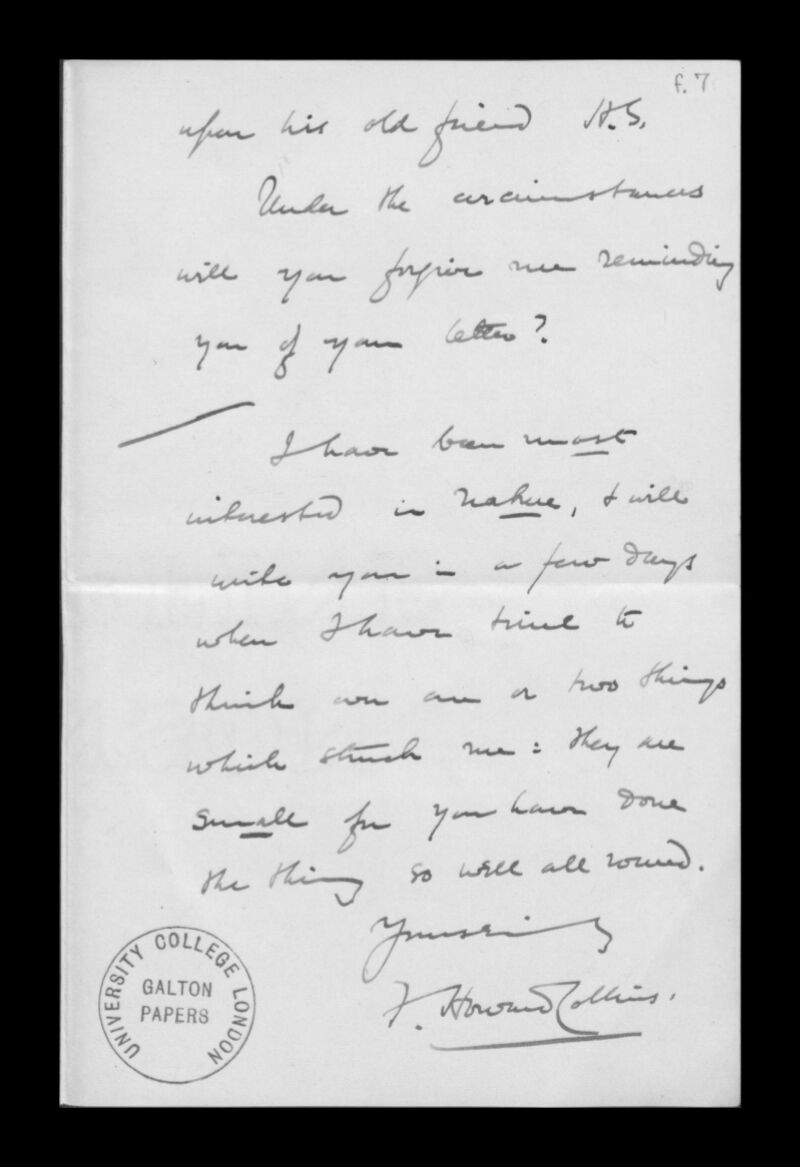 f. 7
upon his old friend H.S.
Under the circumstances
will you forgive me reminding
you of your letter?
I have been most
interested in Nature, & will
write you in a few days
when I have time to
think over one or two things
which struck me: they are
small for you have done
the thing so well all round.
Yours sincerely
F. Howard Collins.
UNIVERSITY COLLEGE LONDON
GALTON
PAPERS